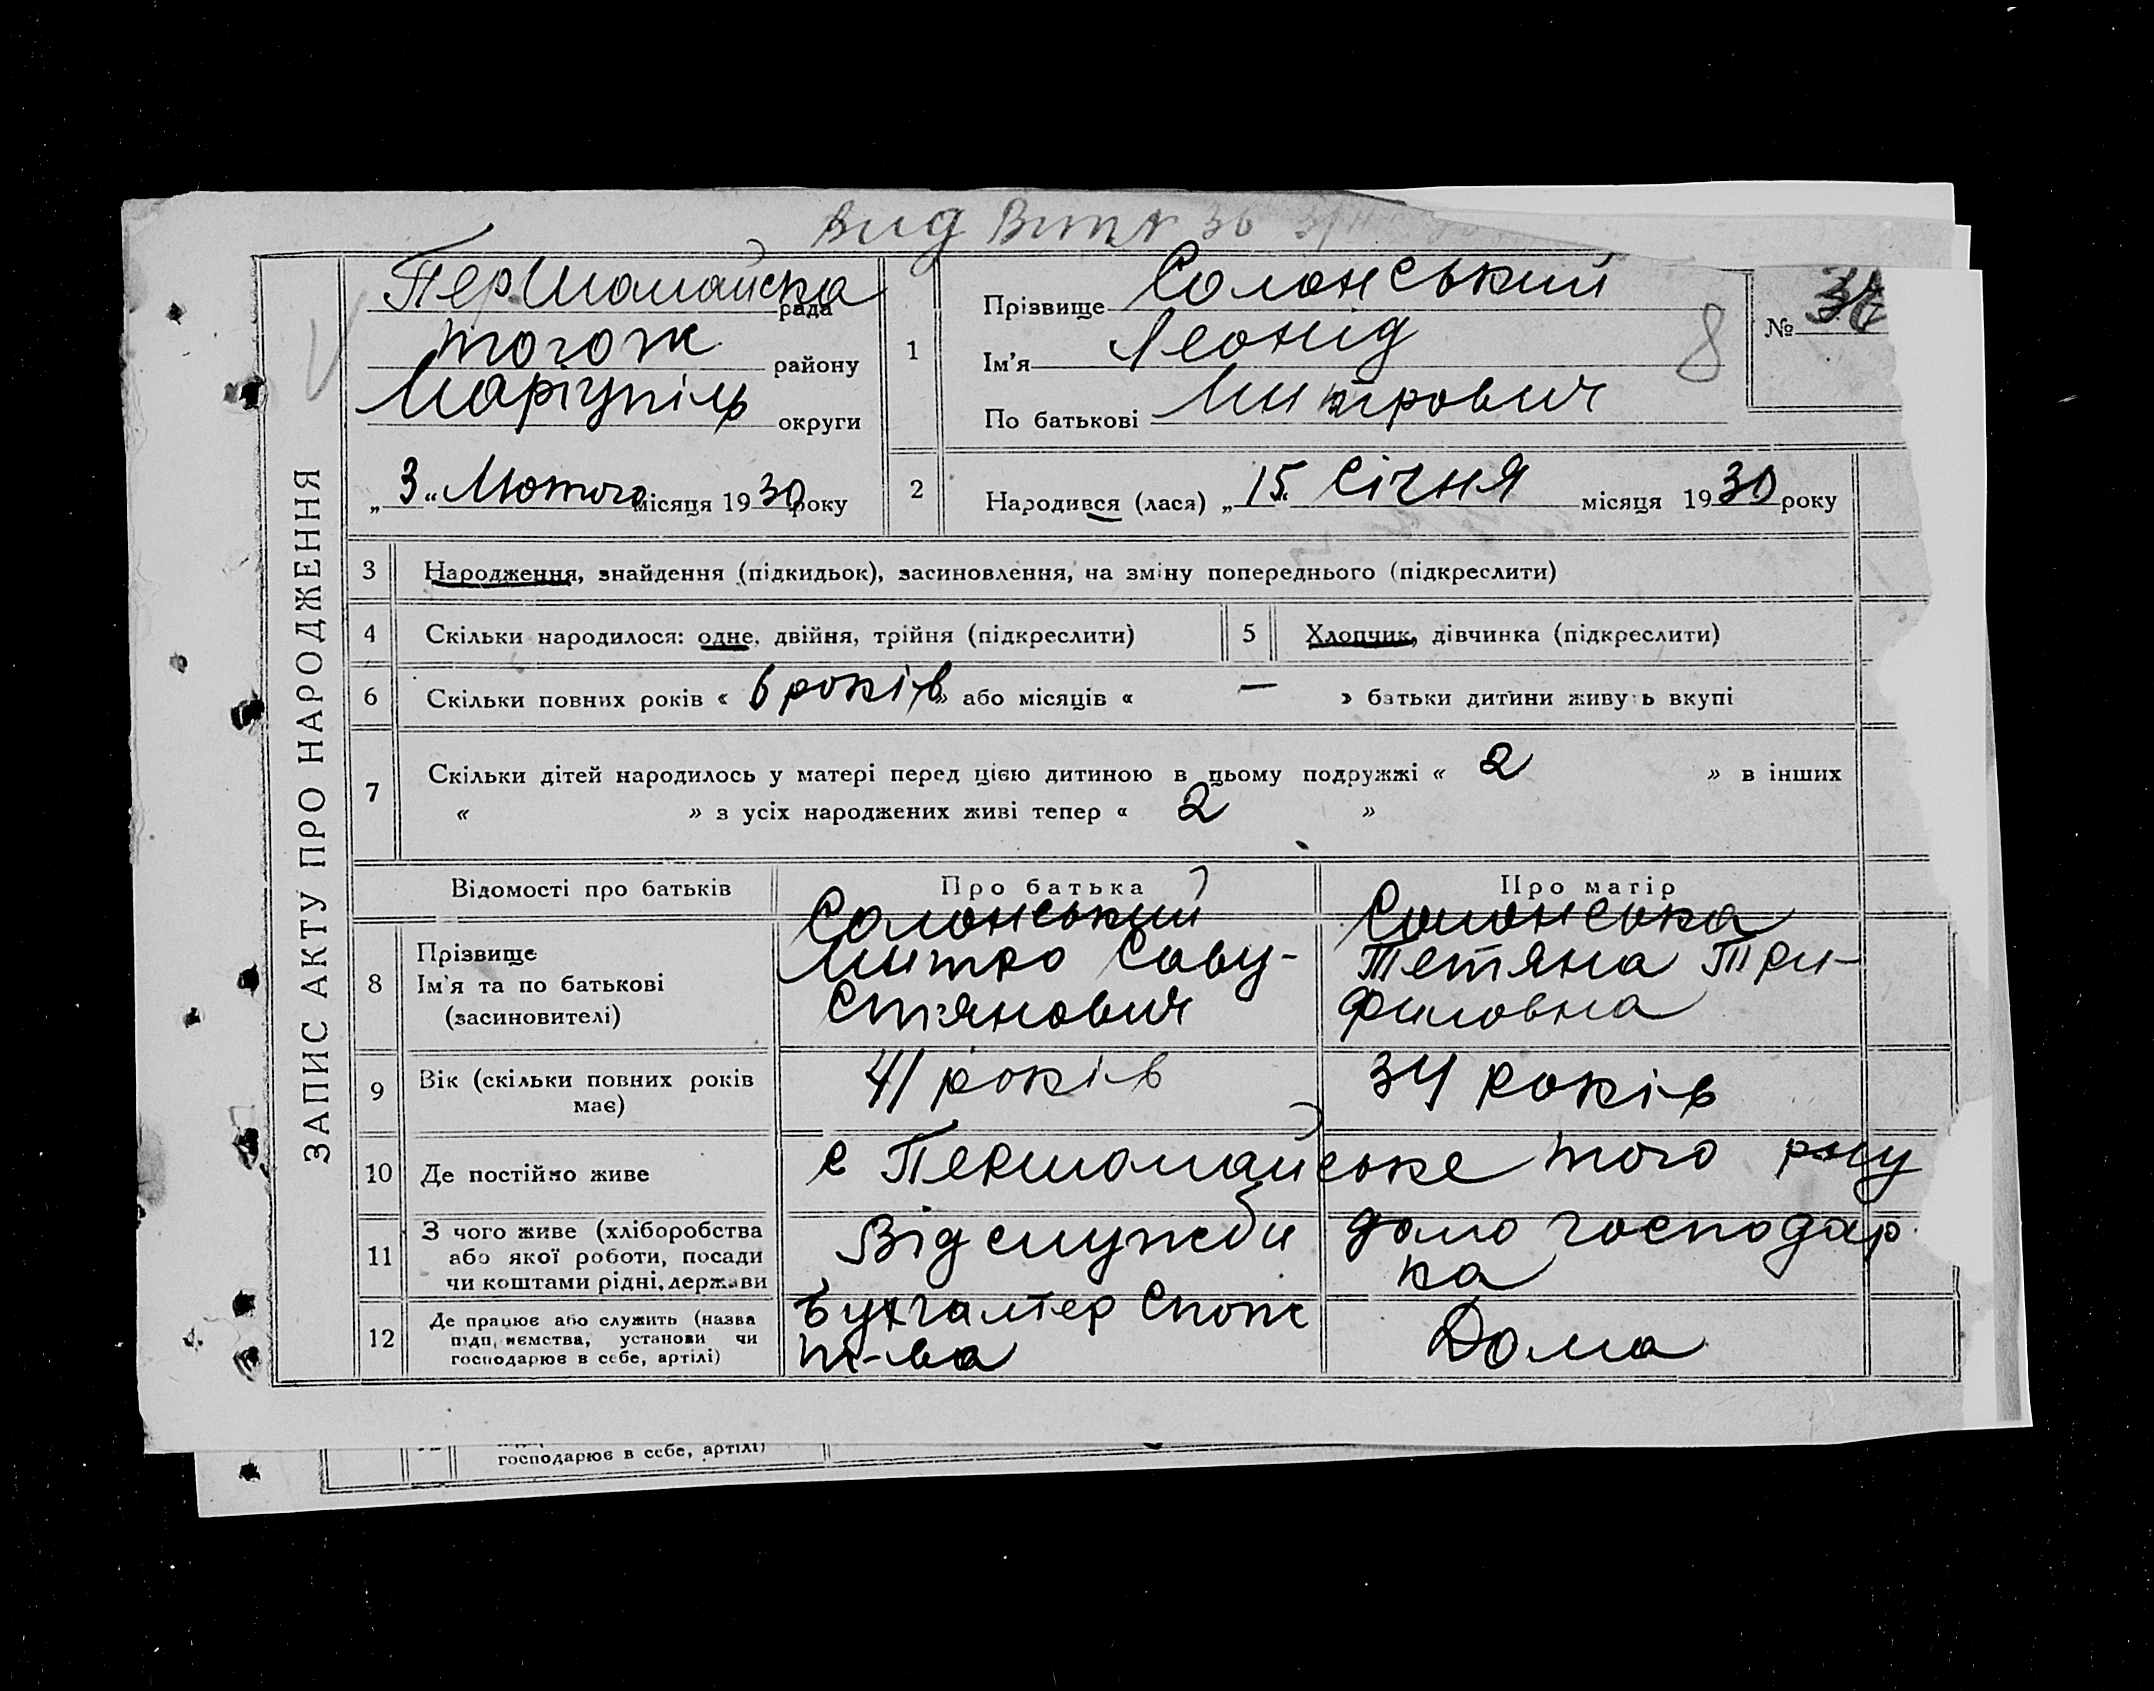 вид Вит № 36
ЗАПИС АКТУ ПРО НАРОДЖЕННЯ
Першомайска рада
тогож району
Маріупіль округи
„3“ Лютого місяця 1930 року
1
Прізвище Солонський
Ім'я Леонид
По батькові Митрович
8
№
2
Народився (лася) „15“ Січня місяця 1930 року
3 Народження, знайдення (підкидьок), засиновлення, на зміну попереднього (підкреслити)
4 Скільки народилося: одне, двійня, трійня (підкреслити)
5 Хлопчик, дівчинка (підкреслити)
6 Скільки повних років « 6 років » або місяців « — » батьки дитини живуть вкупі
7 Скільки дітей народилось у матері перед цією дитиною в цьому подружжі « 2 » в інших
« » з усіх народжених живі тепер « 2 »
Відомості про батьків
Про батька
Про матір
8
Прізвище
Ім'я та по батькові
(засиновителі)
Солонський
Митро Саву-
стянович
Солонська
Тетяна Три-
филовна
9
Вік (скільки повних років
має)
41 років
34 років
10 Де постійно живе
с Першомайське того рну
11
З чого живе (хліборобства
або якої роботи, посади
чи коштами рідні, держави
Від служби
домогосподар
ка
12
Де працює або служить (назва
підприємства, установи чи
господарює в себе, артілі)
бухгалтер Спож
т-ва
Дома
господарює в себе, артілі)